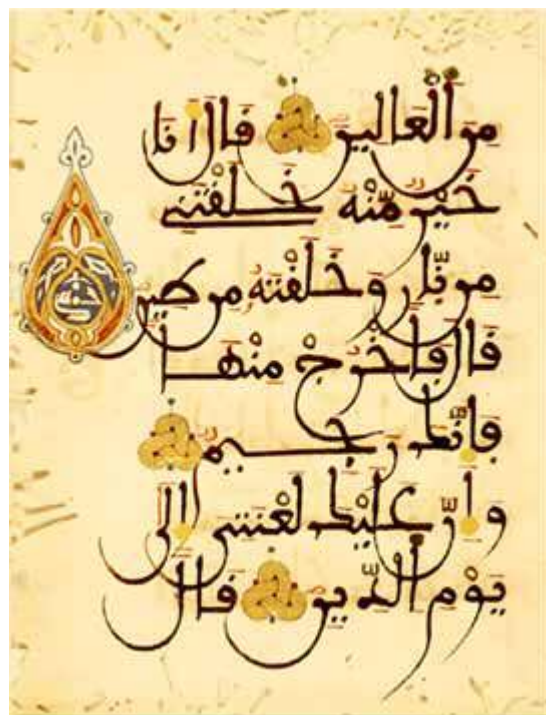 مِنَ ٱلْعَالِينَ قَالَ أَنَا
خَيْرٌ مِّنْهُ خَلَقْتَنِي
مِن نَّارٍ وَخَلَقْتَهُ مِن طِينٍ
قَالَ فَاخْرُجْ مِنْهَا
فَإِنَّكَ رَجِيمٌ
وَإِنَّ عَلَيْكَ لَعْنَتِي إِلَى
يَوْمِ ٱلدِّينِ قَالَ